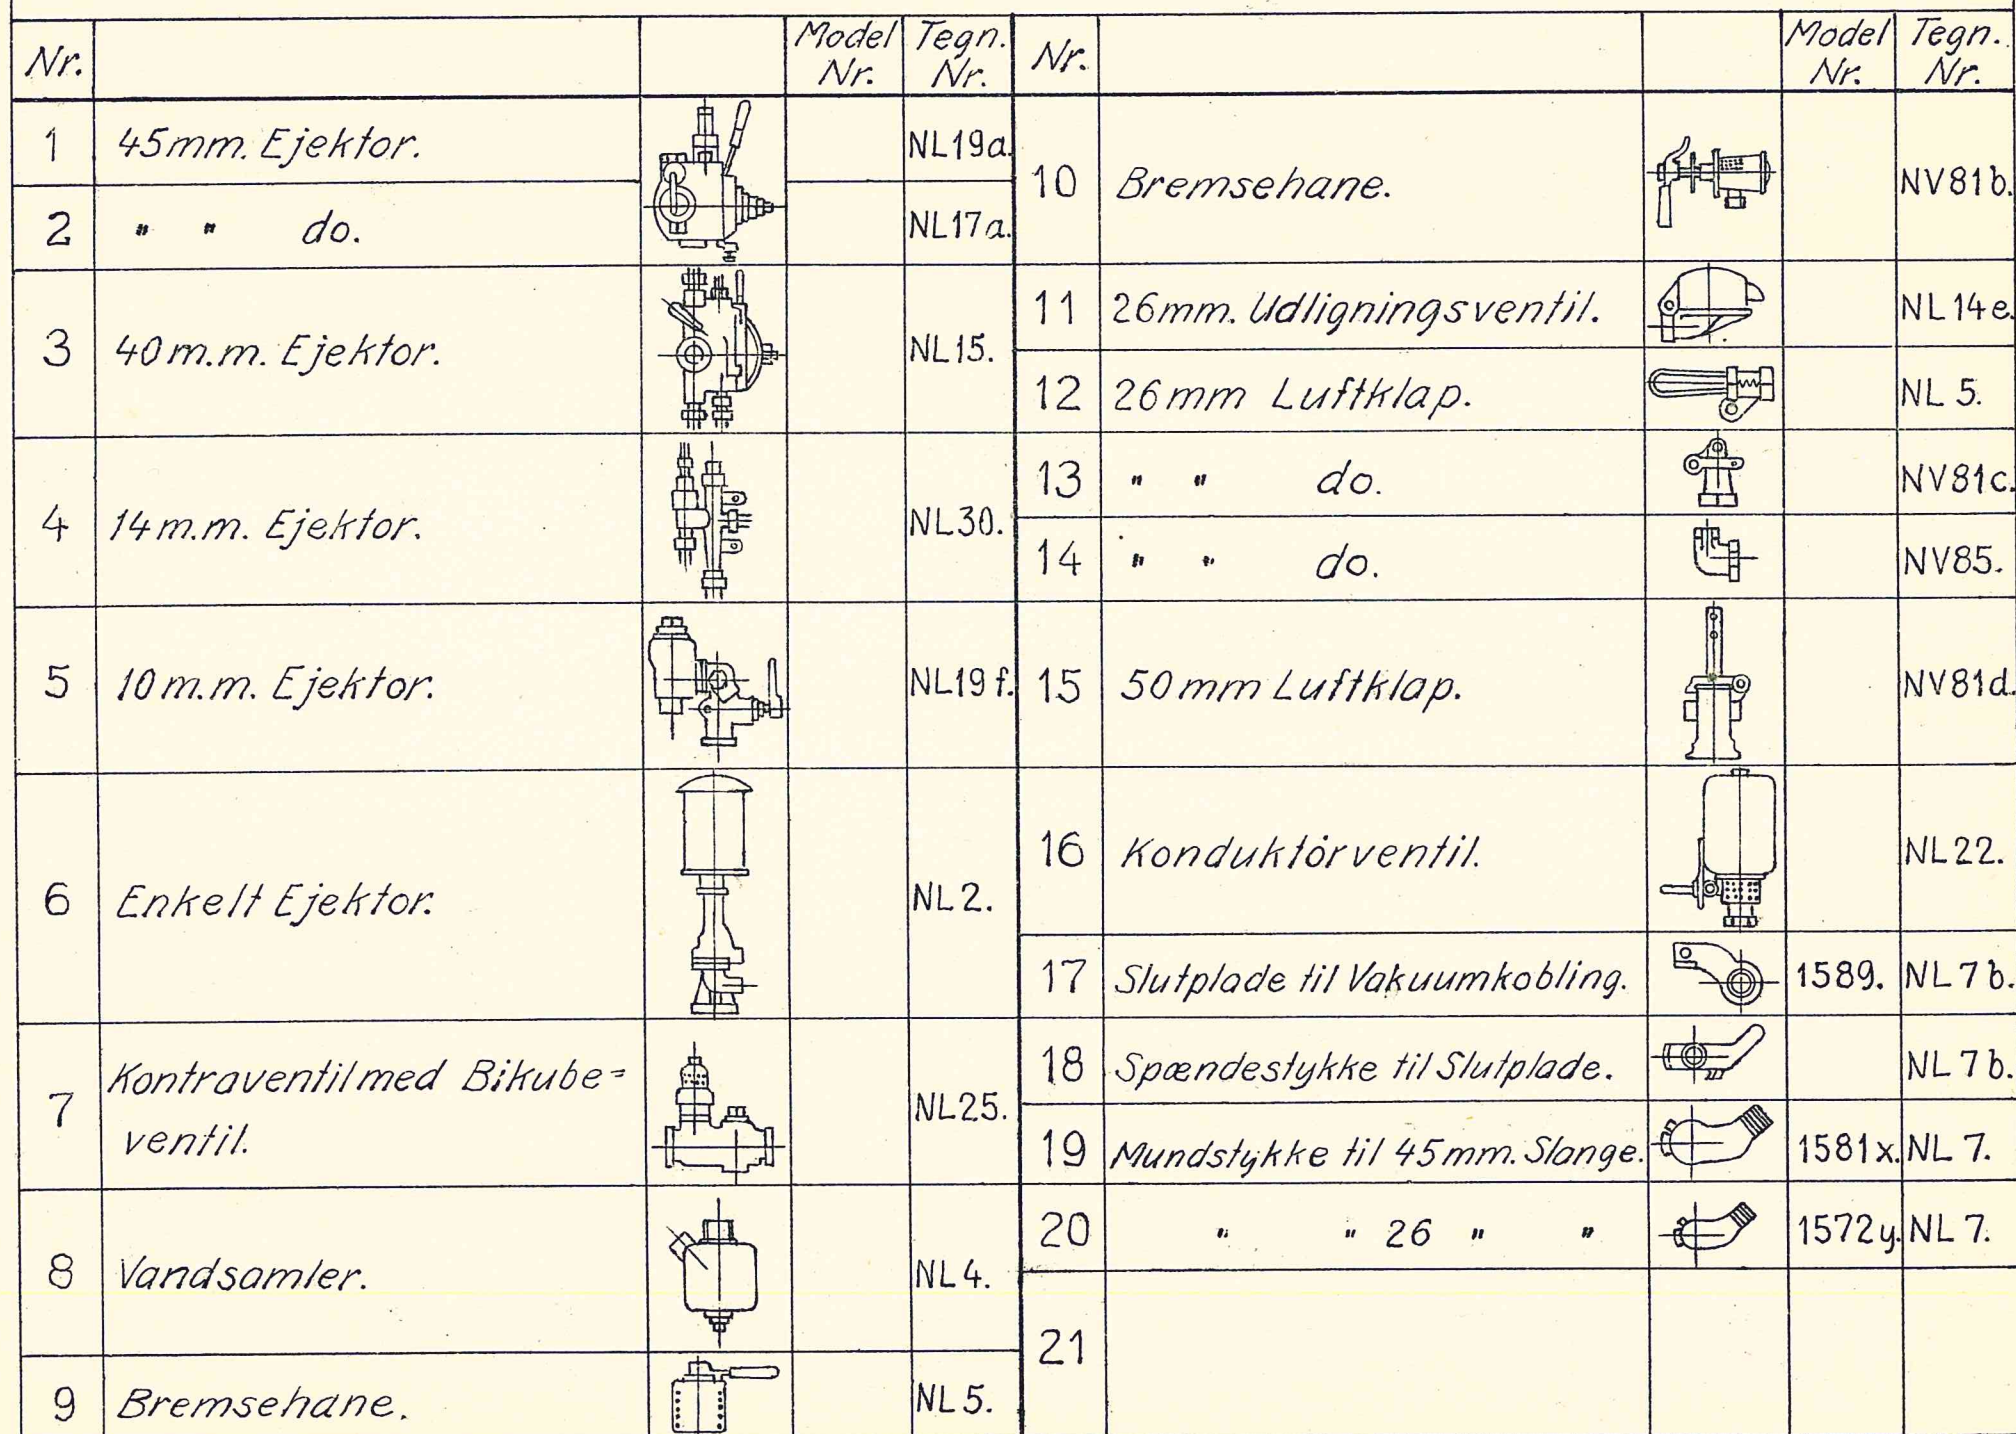 Nr. Model Nr. Tegn. Nr.
1 45mm. Ejektor. NL19a.
2 " " do. NL17a.
3 40m.m. Ejektor. NL15.
4 14m.m. Ejektor. NL30.
5 10m.m. Ejektor. NL19f.
6 Enkelt Ejektor. NL2.
7 Kontraventil med Bikube=
ventil. NL25.
8 Vandsamler. NL4.
9 Bremsehane. NL5.
Nr. Model Nr. Tegn. Nr.
10 Bremsehane. NV81b.
11 26mm. Udligningsventil. NL14e.
12 26mm Luftklap. NL5.
13 " " do. NV81c.
14 " " do. NV85.
15 50mm Luftklap. NV81d.
16 Konduktörventil. NL22.
17 Slutplade til Vakuumkobling. 1589. NL7b.
18 Spændestykke til Slutplade. NL7b.
19 Mundstykke til 45mm. Slange. 1581x. NL7.
20 " " 26 " " 1572y. NL7.
21